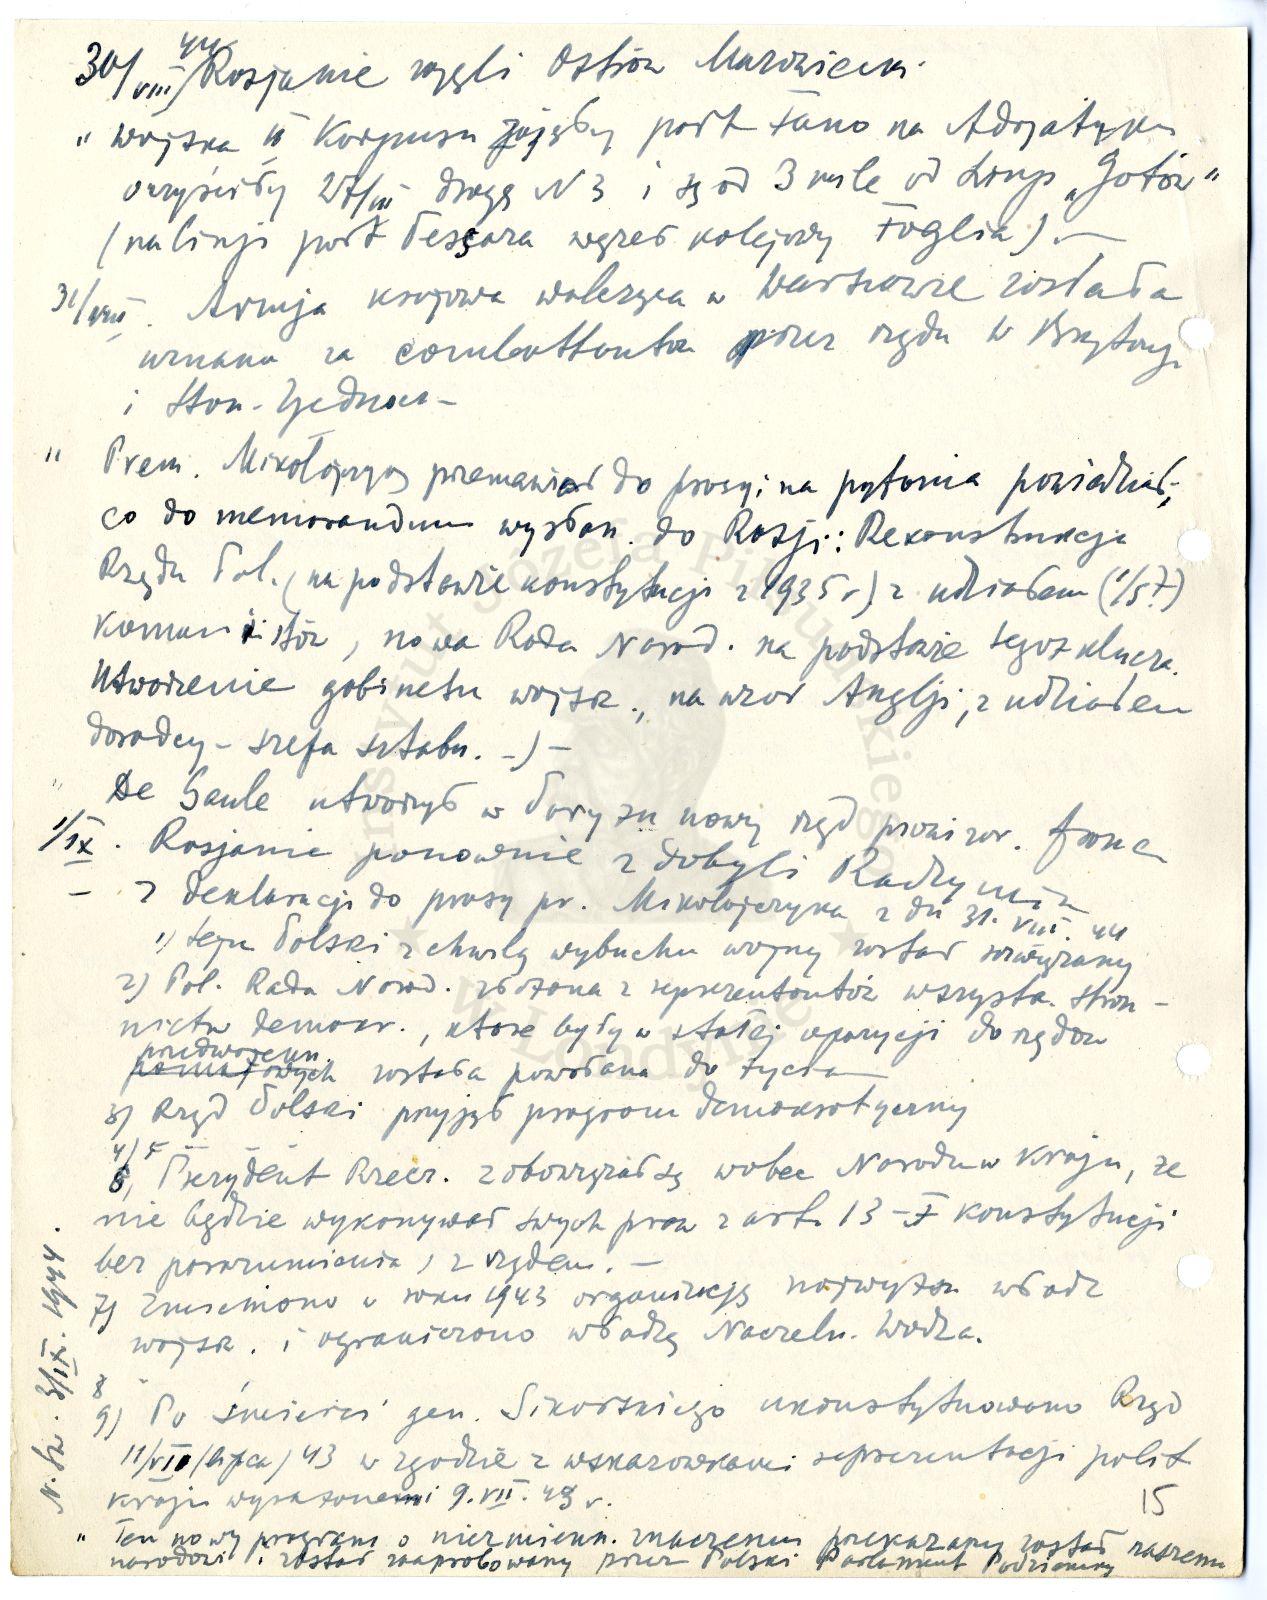 30/VIII 44 Rosjanie zajęli Ostrów Mazowiecki.
" Wojska II Korpusu zajęły port Fano na Adrjatyku
oczyściły 27/VIII drogę N 3 i są od 3 mile od Linji „Gotów"
(na linji port Pesaro węzeł kolejowy Foglia). —
31/VIII. Armja krajowa walcząca w Warszawie została
uznana za combattantów przez rządy W Brytanj.
i Stan. Zjednocz —
" Prem. Mikołajczyk przemawiał do prasy i na pytania powiedział,
co do memorandum wysłan. do Rosji: Rekonstrukcja
Rządu Pol. (na podstawie konstytucji z 1935 r.) z udziałem (1/5 ?)
komunistów, nowa Rada Narod. na podstawie tegoż klucza.
Utworzenie gabinetu wojsk., na wzór Anglji, z udziałem
doradcy - szefa sztabu. —
" De Gaule utworzył w Paryżu nowy rząd prowizor. Franc
1/IX. Rosjanie ponownie zdobyli Radzymin
— Z deklaracji do prasy pr. Mikołajczyka z dn 31. VIII. 44
1) Sejm Polski z chwilą wybuchu wojny został rozwiązany
2) Pol. Rada Narod. złożona z reprezentantów wszystk. stron-
nictw demokr., które były w stałej opozycji do rządów
przedwojenn.
została powołana do życia —
3) Rząd Polski przyjął program demokratyczny
4) 5
6, Prezydent Rzecz. zobowiązał się wobec Narodu w Kraju, że
nie będzie wykonywał swych praw z art. 13 Konstytucji
bez porozumienia z rządem. —
7) Zmieniono w roku 1943 organizację najwyższ władz
wojsk. i ograniczono władzę Naczeln. Wodza.
8 "
9) Po śmierci gen. Sikorskiego ukonstytuowano Rząd
11/VII (lipca) 43 w zgodzie z wskazówkami reprezentacji polit
kraju wyrażonemi 9. VII. 43 r.
" Ten nowy program o niezmienn. znaczeniu przekazany został naszemu
narodowi i został zaaprobowany przez Polski Parlament Podziemny
15
N. Św. 3/IX. 1944.
Instytut Józefa Piłsudskiego
★ w Londynie ★